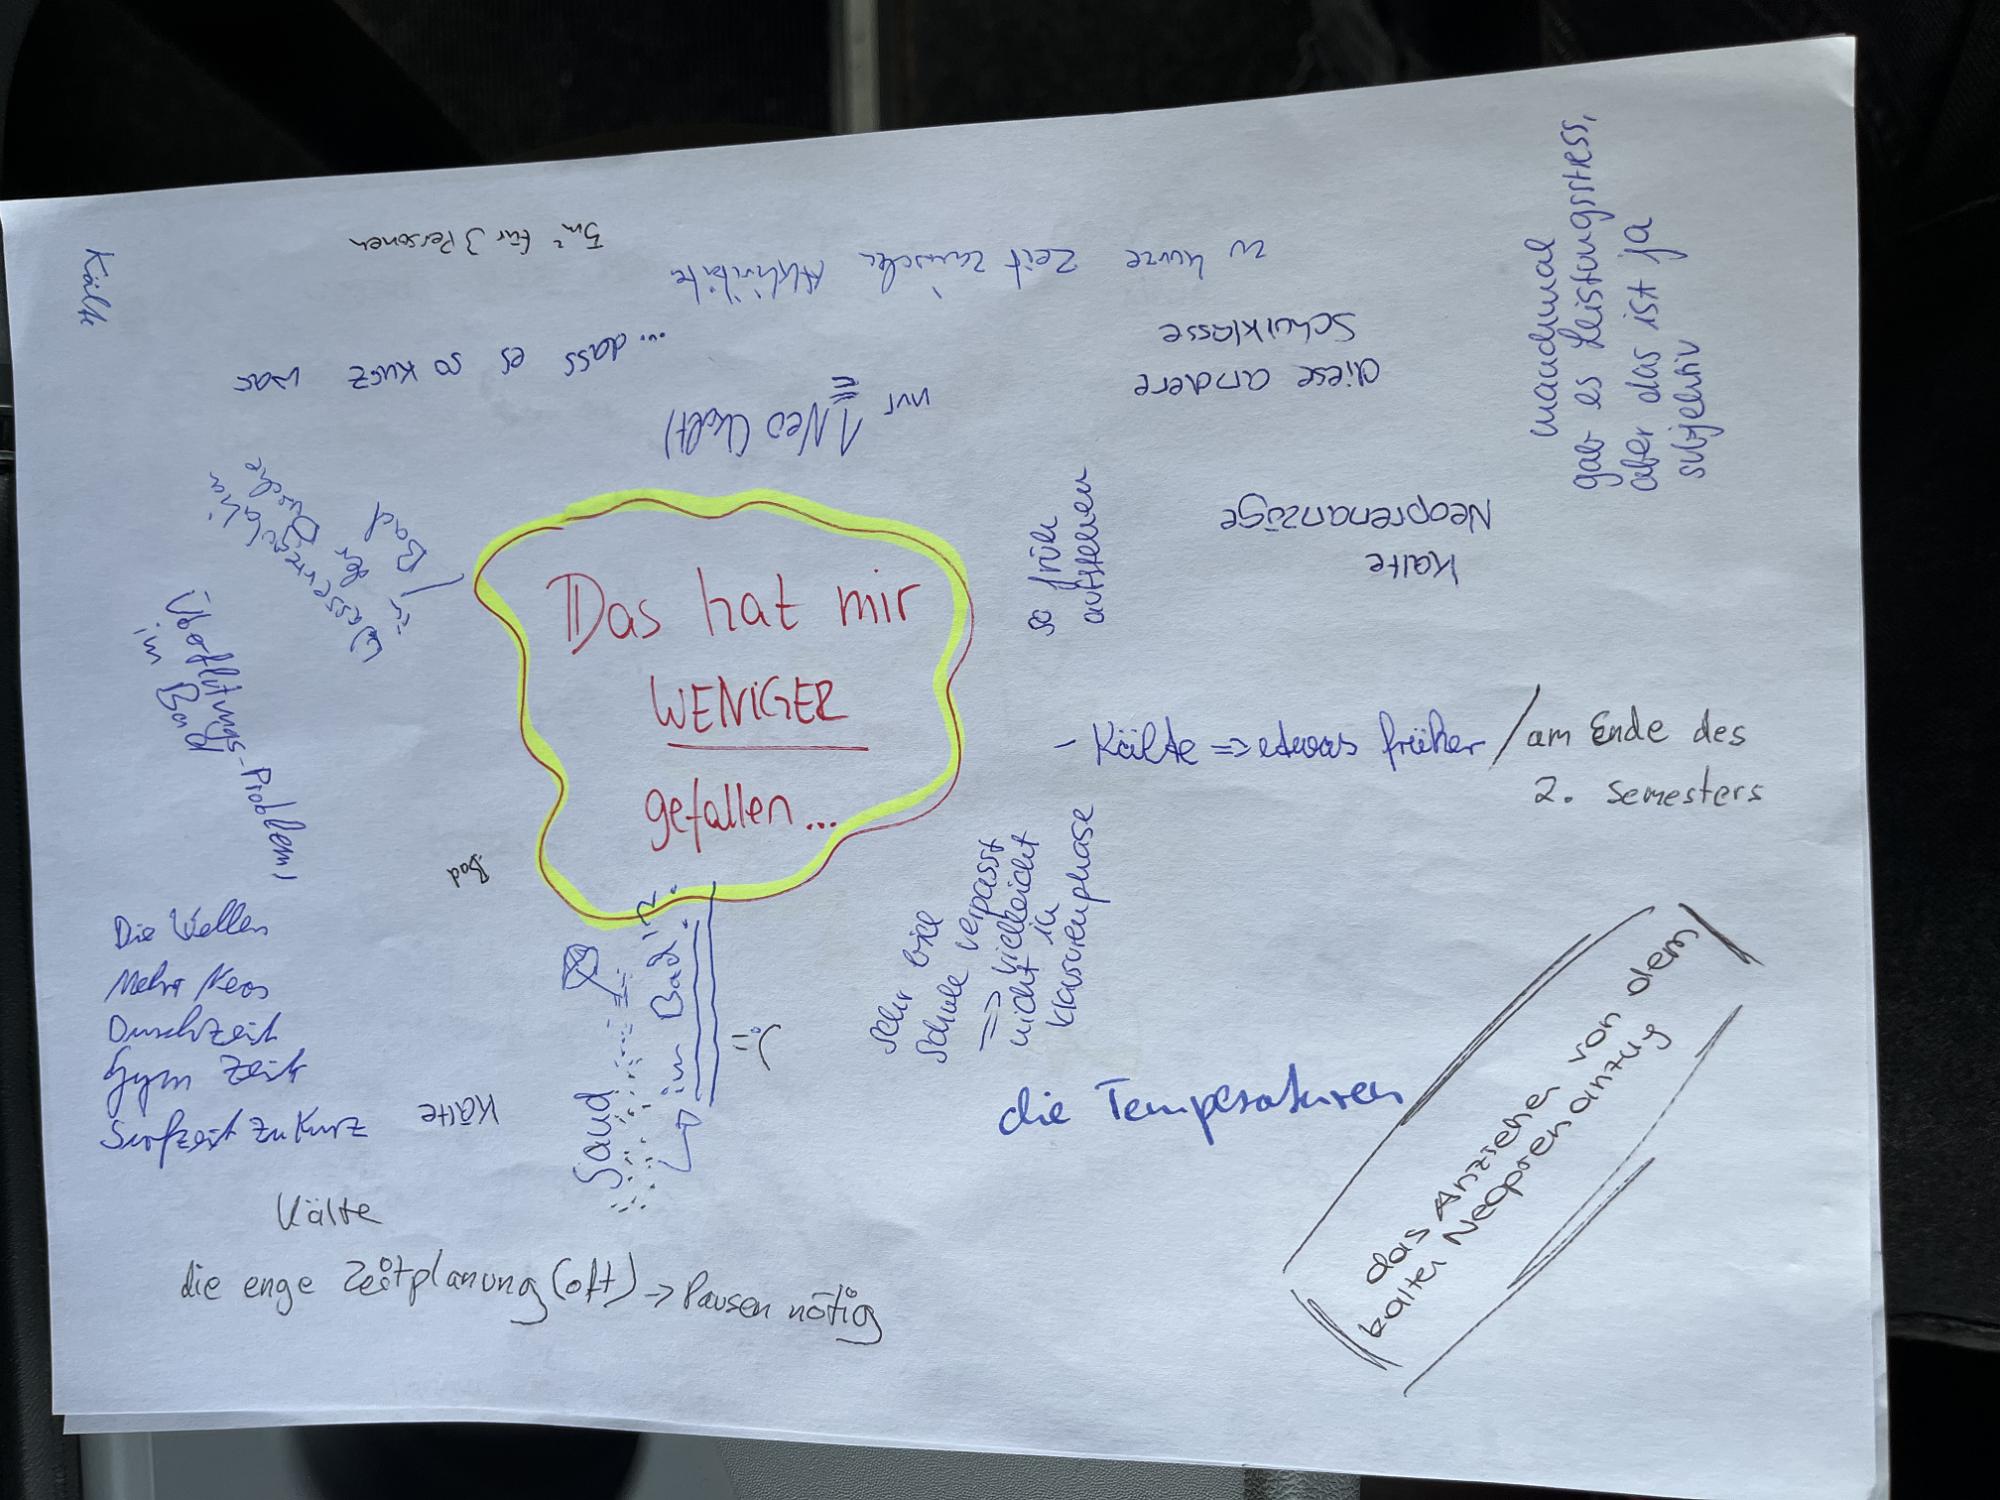 Das hat mir
WENIGER
gefallen...
Kälte
5m² für 3 Personen
zu kurze Zeit zwischen
...dass es so kurz war
nur
1 Neo (kalt)
diese andere
Schulklasse
manchmal
gab es Leistungsstress,
aber das ist ja
subjektiv
Kalte
Neoprenanzüge
so früh
aufstehen
- Kälte => etwas früher / am Ende des
2. Semesters
sehr viel
Schule verpasst
=> vielleicht
nicht in
Klausurenphase
die Temperaturen
das Anziehen von dem
kalten Neoprenanzug
in der Dusche
im Bad
Überflutungs-Problem
im Bad
Bad
Die Wellen
Mehr Neos
Duschzeit
Gym Zeit
Surfzeit zu kurz
Kälte
Sand
im Bad
:(
Kälte
die enge Zeitplanung (oft) -> Pausen nötig